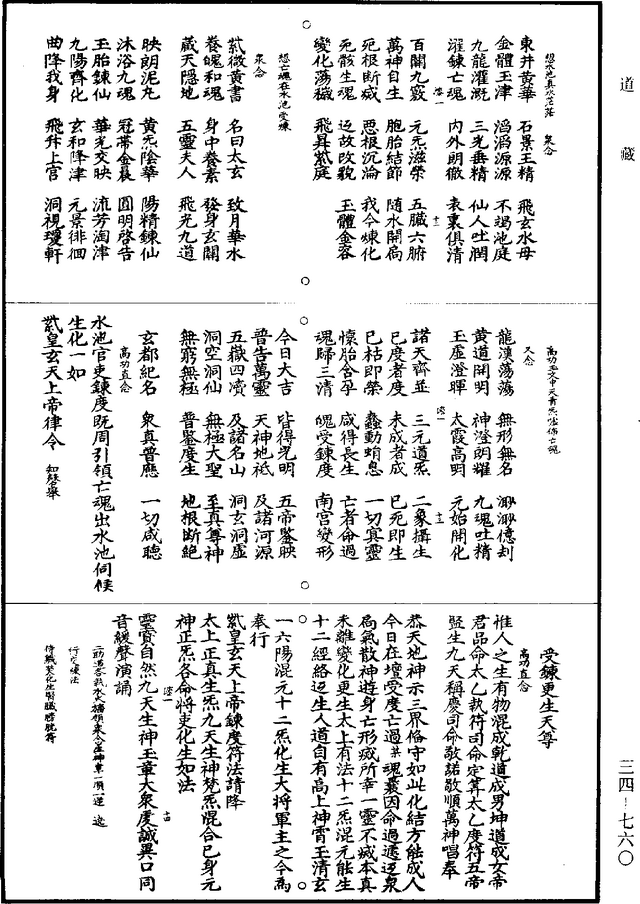 道藏
想水池真水茫茫　衆念
東井黃華　石景玉精　飛玄水母
金體玉津　滔滔源源　不竭池庭
九龍灌溉　三光垂精　仙人吐潤
濯鍊亡魂　內外朗徹　表裏俱清
百關九竅　元炁滋榮　五臟六腑
萬神自生　胞胎結節　隨水開扃
死根斷滅　惡根沉淪　我今煉化
死骸生魂　迅故改貌　玉體金容
變化蕩穢　飛昇紫庭
想亡魂在水池受煉
衆念
紫微黃書　名曰太玄　致月華水
養魄和魂　身中養素　發身玄關
藏天隱地　五靈夫人　飛光九道
映朗泥丸　黃炁陰華　陽精鍊仙
沐浴九魂　冠帶金晨　圓明啓告
玉胎鍊仙　華光交映　流芳洞津
九陽齊化　玄和降津　元景徘徊
曲降我身　飛升上宮　洞視瓊軒
高功
又念
龍漢蕩蕩　無形無名　渺渺億刦
黃道開明　神澄朗耀　九魂吐精
玉虛澄暉　太霞高明　元始開化
諸天齊並　三元道炁　二象攝生
已度者度　未成者成　已死即生
已枯即榮　蠢動蛸息　一切真靈
懷胎含孕　咸得長生　亡者命過
魂歸三清　魄受鍊度　南宮變形
今日大吉　皆得光明　五帝鑒映
普告萬靈　天神地祇　及諸河源
五嶽四瀆　及諸名山　洞玄洞虛
洞空洞仙　無極大聖　至真尊神
無窮無極　普鑒度生　地根斷絶
玄都紀名　衆真普應　一切咸聽
高功直念
水池官吏鍊度既周引領亡魂出水池伺候
生化一如
紫皇玄天上帝律令　知磬舉
受鍊更生天尊
高功直念
惟人之生有物混成乾道成男坤道成女帝
君品命太乙執符司命定筭太乙度符五帝
監生九天稱慶司命敬諾敬順萬神唱奉
恭天地神示三界俻守如此化結方能成人
今日在壇受度亡過某魂曩因命過逓迈泉
扃氣散神遊身亡形滅所幸一靈不滅本真
未離變化更生太上有法十二炁混元能生
十二經絡迈生人道自有高上神霄玉清玄
一六陽混元十二炁化生大將軍主之令爲
奉行
紫皇玄天上帝鍊度符法請降
太上正真生炁九天生神梵炁混合已身元
神正炁各命將吏化生如法
靈寳自然九天生神玉章大衆虔誠異口同
音緩聲演誦
行火煉法
三四－七六〇